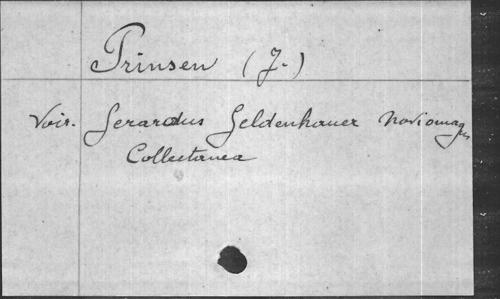 Prinsen (J.)
Voir. Gerardus Geldenhauer Noviomagus
Collectanea